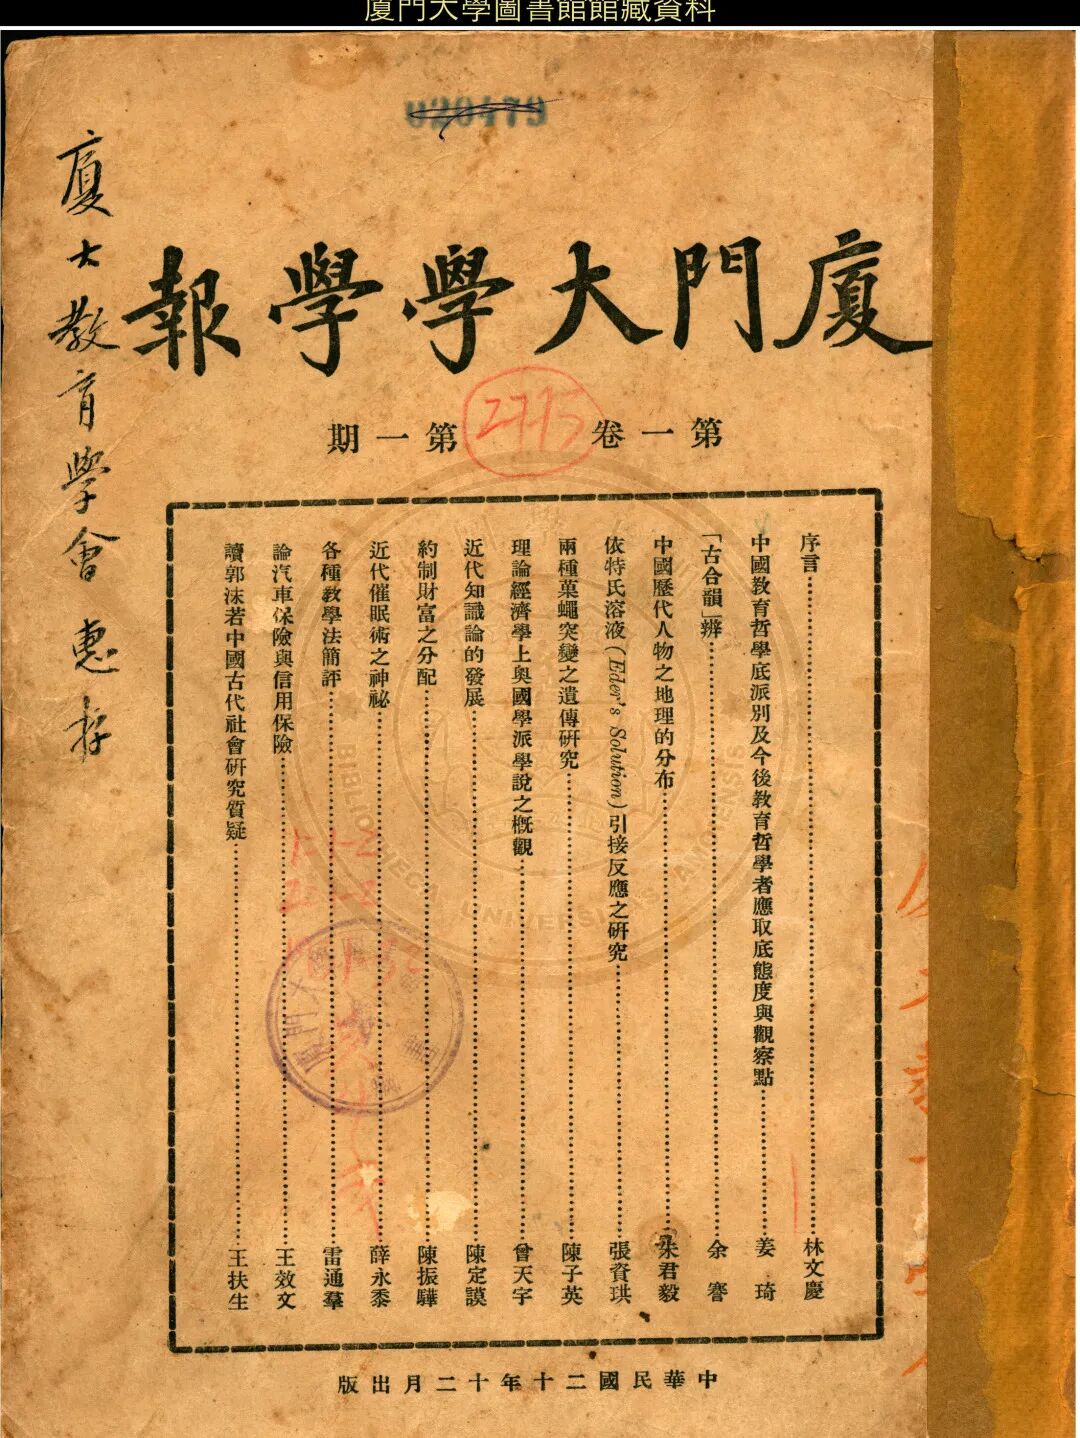 廈門大學圖書館館藏資料
020479
廈大教育學會 惠存
廈門大學學報
第一卷 第一期
2775
序言 林文慶
中國教育哲學底派別及今後教育哲學者應取底態度與觀察點 姜琦
「古合韻」辨 余謇
中國歷代人物之地理的分布 朱君毅
依特氏溶液(Eder's Solution)引接反應之研究 張資珙
兩種菓蠅突變之遺傳研究 陳子英
理論經濟學上奧國學派學說之概觀 曾天宇
近代知識論的發展 陳定謨
約制財富之分配 陳振驊
近代催眠術之神祕 薛永黍
各種教學法簡評 雷通羣
論汽車保險與信用保險 王效文
讀郭沫若中國古代社會研究質疑 王扶生
中華民國二十年十二月出版